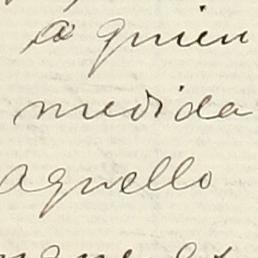 a quien
medida
aquello